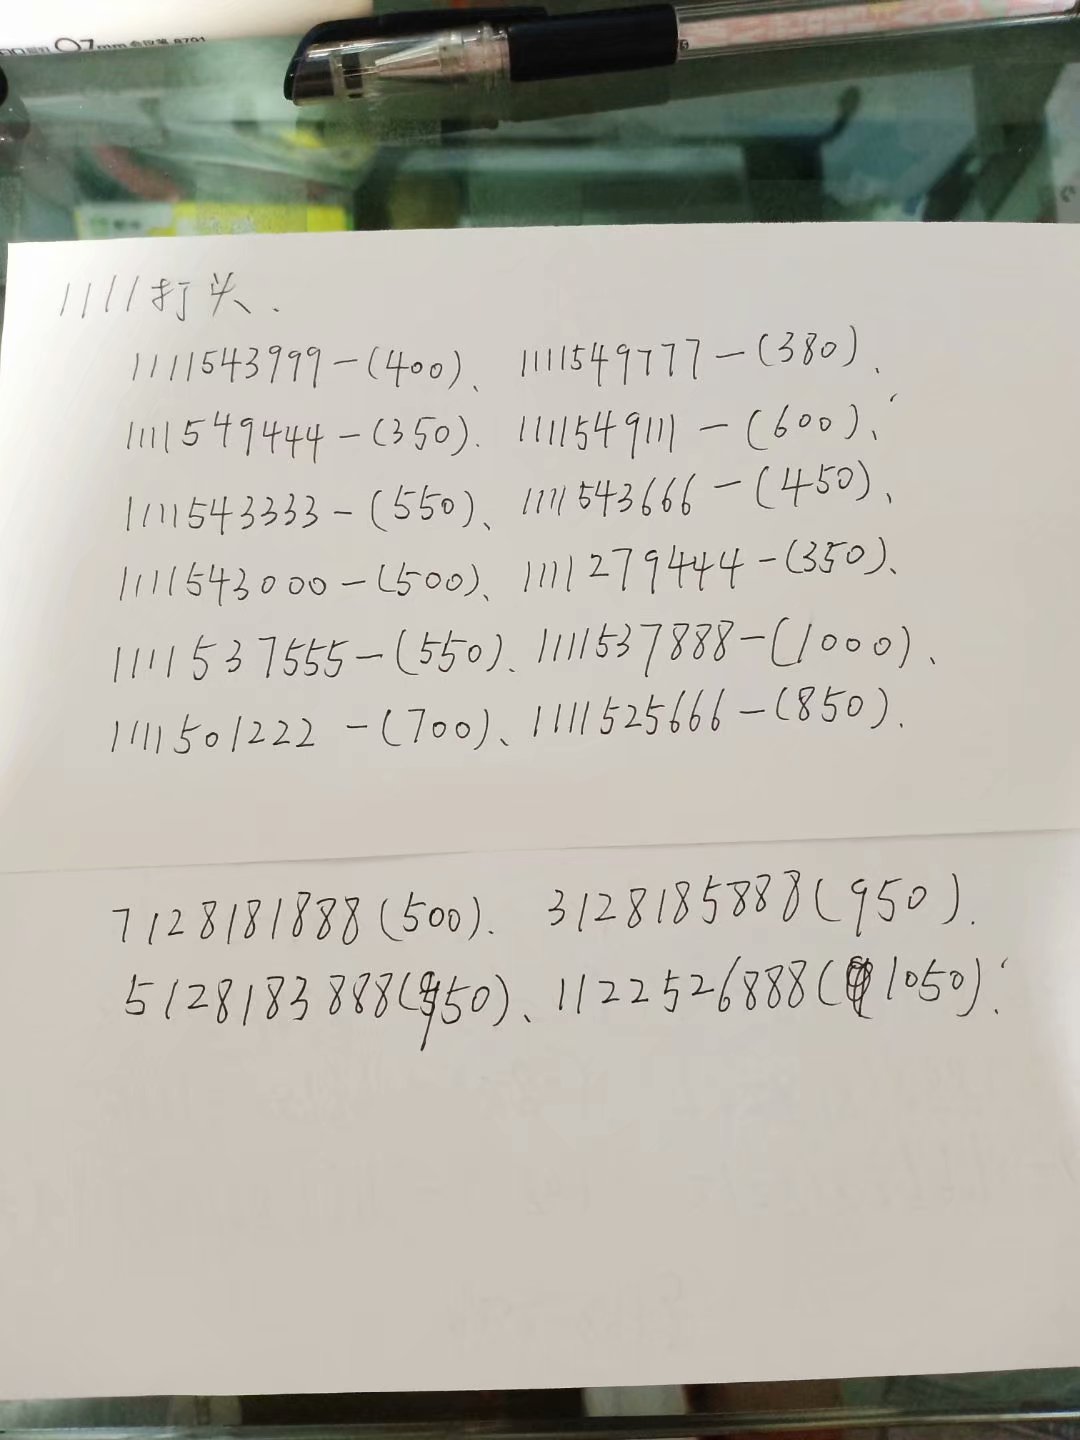 0.7mm 会议笔 8701
1111打头.
1111543999-(400)、 1111549777-(380).
1111549444-(350). 1111549111-(600)、
1111543333-(550)、 1111543666-(450)、
1111543000-(500)、 1111279444-(350)、
1111537555-(550)、 1111537888-(1000)、
1111501222-(700)、 1111525666-(850).
7128181888(500). 3128185888(950).
5128183888(950)、 1122526888(1050).